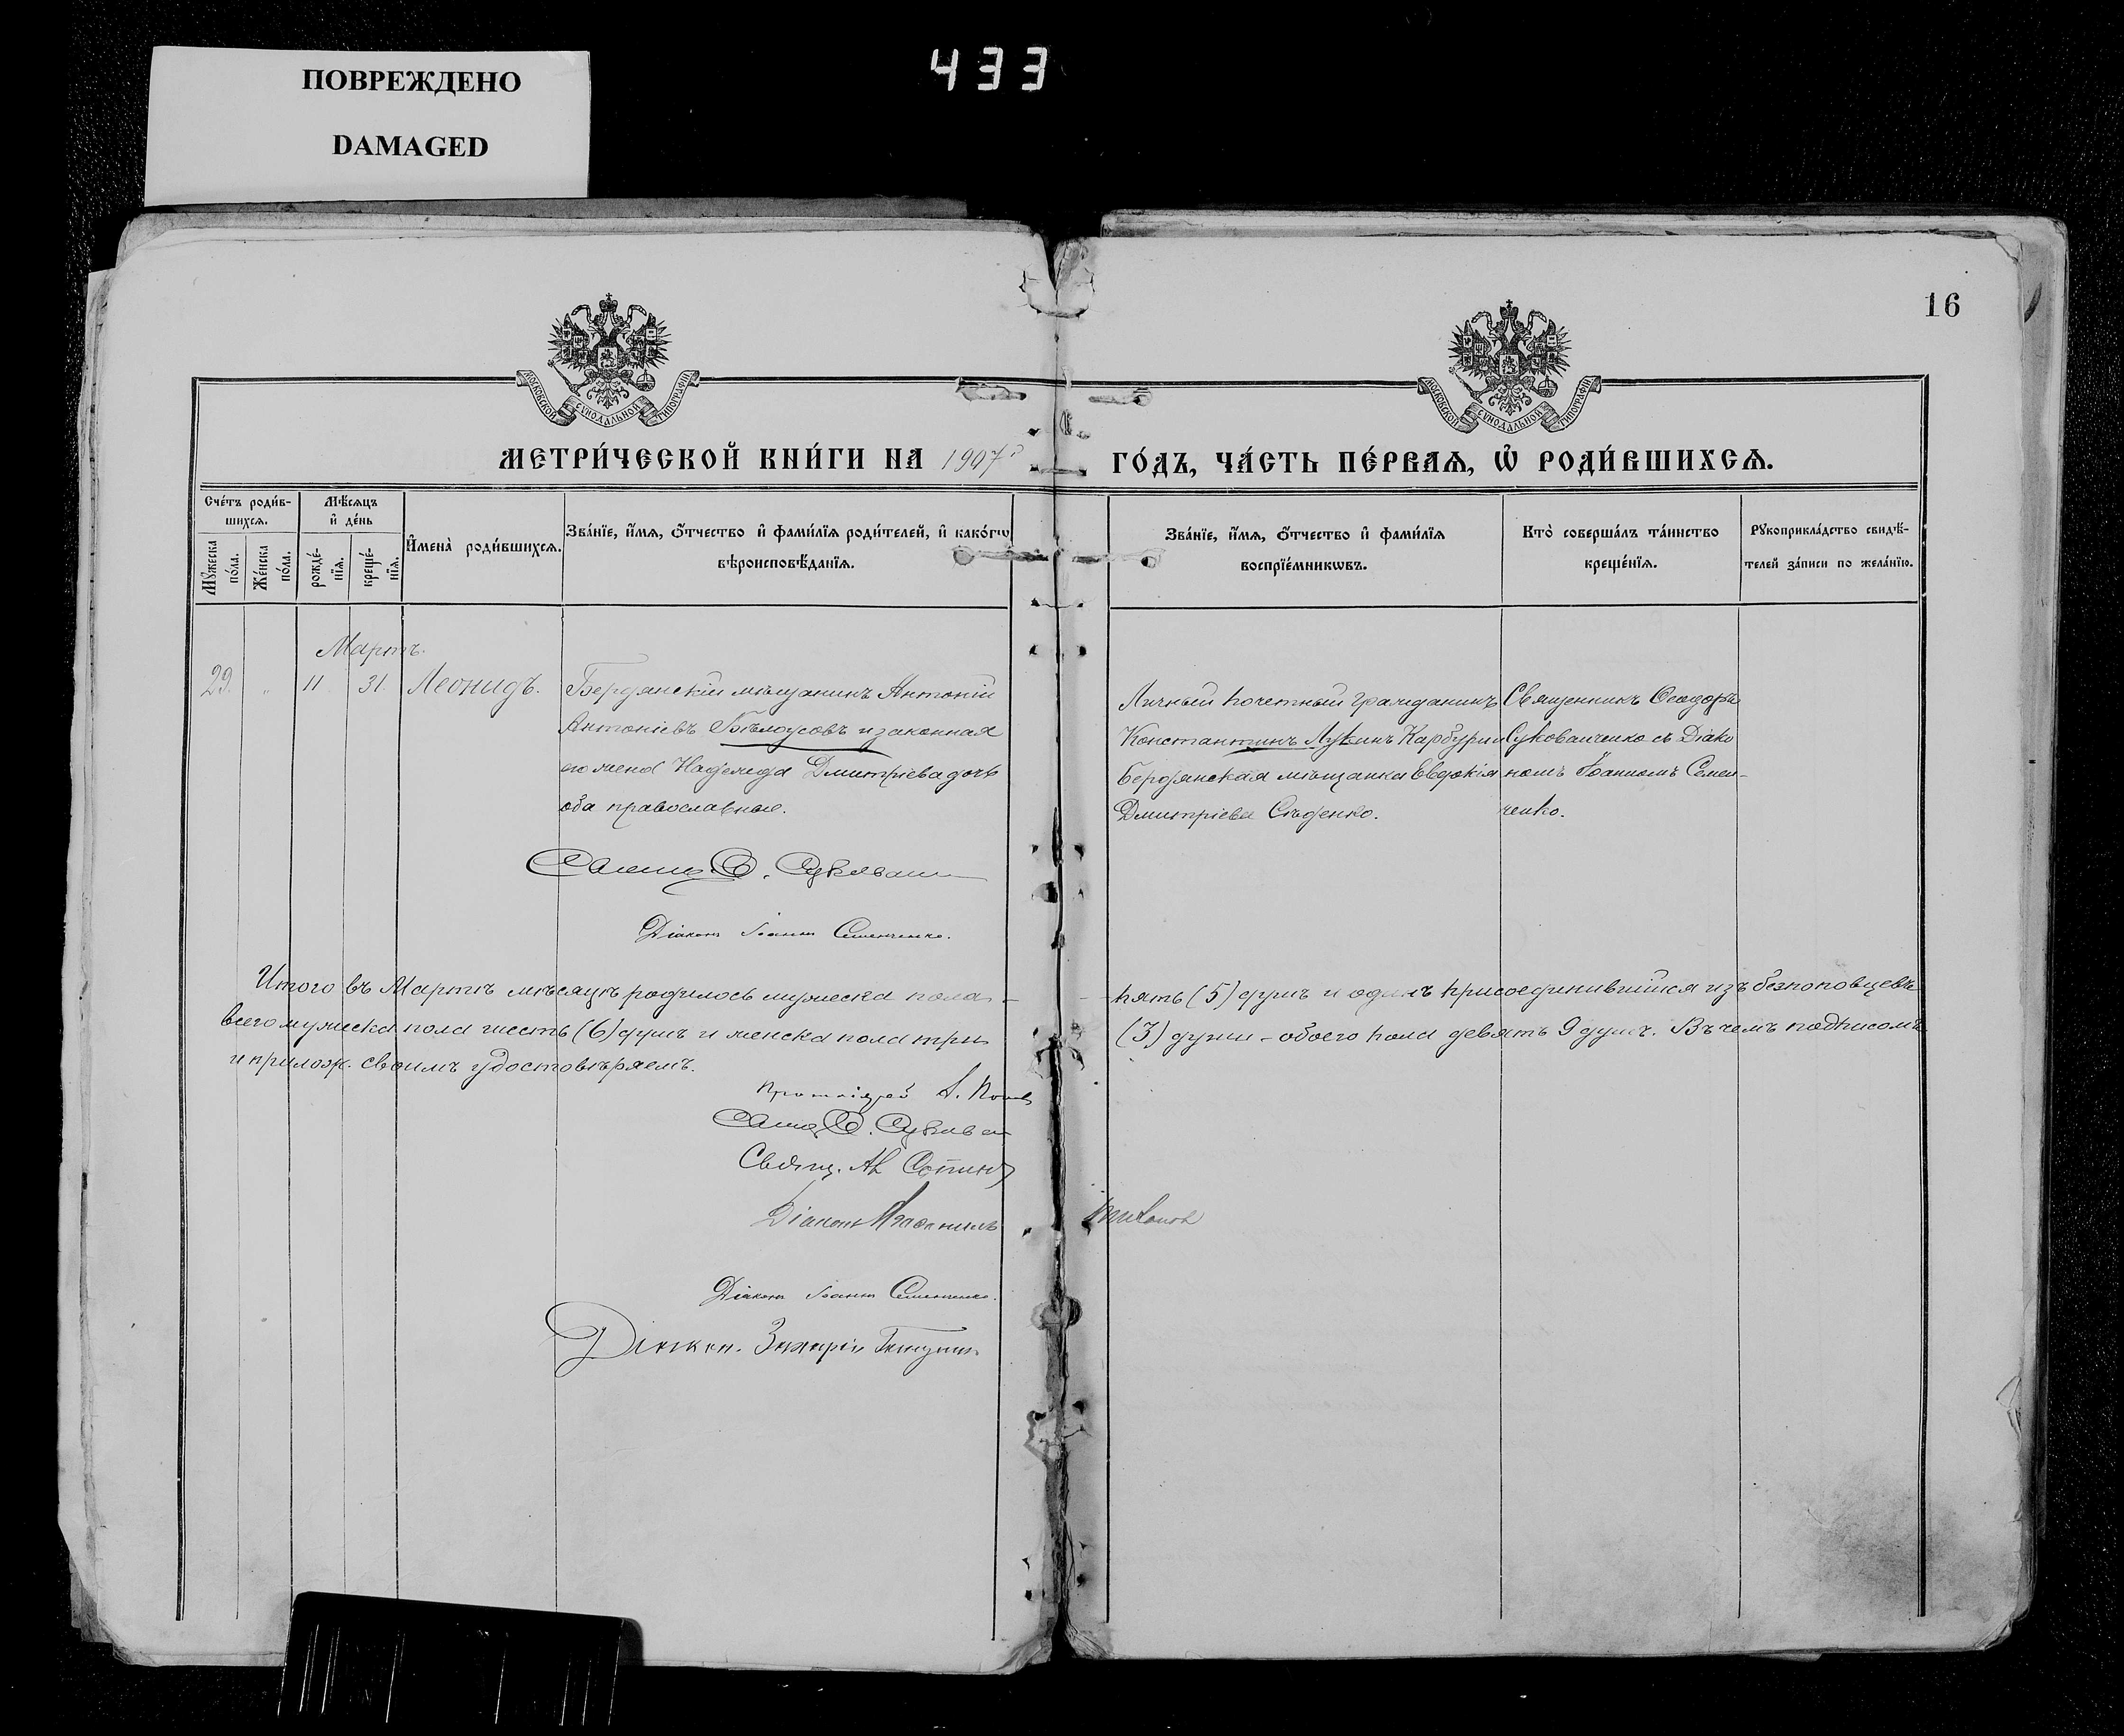 ПОВРЕЖДЕНО
DAMAGED
433
16
МОСКОВСКОЙ СУНОДАЛЬНОЙ ТИПОГРАФІИ
МОСКОВСКОЙ СУНОДАЛЬНОЙ ТИПОГРАФІИ
МЕТРИ́ЧЕСКОЙ КНИ́ГИ НА 1907 ГО́ДЪ, ЧА́СТЬ ПЕ́РВАѦ, Ѡ҆ РОДИ́ВШИХСѦ.
Сче́тъ роди́в-
шихсѧ.
Мꙋ́жеска
по́ла.
Же́нска
по́ла.
Мѣ́сѧцъ
и҆ де́нь
рожде́-
нїѧ.
креще́-
нїѧ.
И҆мена̀ роди́вшихсѧ.
Зва́нїе, и҆́мѧ, ѻ҆́тчество и҆ фами́лїѧ роди́телей, и҆ како́гѡ
вѣроисповѣ́данїѧ.
Зва́нїе, и҆́мѧ, ѻ҆́тчество и҆ фами́лїѧ
воспрїе́мникѡвъ.
Кто̀ соверша́лъ та́инство
креще́нїѧ.
Рꙋкоприкла́дство свидѣ́-
телей за́писи по жела́нїю.
Мартъ.
29. " 11 31. Леонидъ.
Бердянскій мѣщанинъ Антоній
Антоніевъ Бѣлоусовъ и законная
его жена Надежда Дмитріева дочь
оба православные.
Личный почетный гражданинъ
Константинъ Лукинъ Карбури
Бердянская мѣщанка Евдокія
Дмитріева Сѣденко.
Священникъ Ѳеодоръ
Суковаиченко съ Діако
номъ Іоанномъ Семен-
ченко.
Діаконъ Іоаннъ Семенченко.
Итого въ Мартѣ мѣсяцѣ родилось мужеска пола - - пять (5) душъ и одинъ присоединившійся изъ безпоповцевъ
всего мужеска пола шесть (6) душъ и женска пола три (3) души - обоего пола девять 9 душъ. Въ чемъ подписомъ
и прилож. своимъ удостовѣряемъ.
Протоіерей
Свящ.
Діаконъ
Діаконъ Іоаннъ Семенченко.
Діакон. Захарій